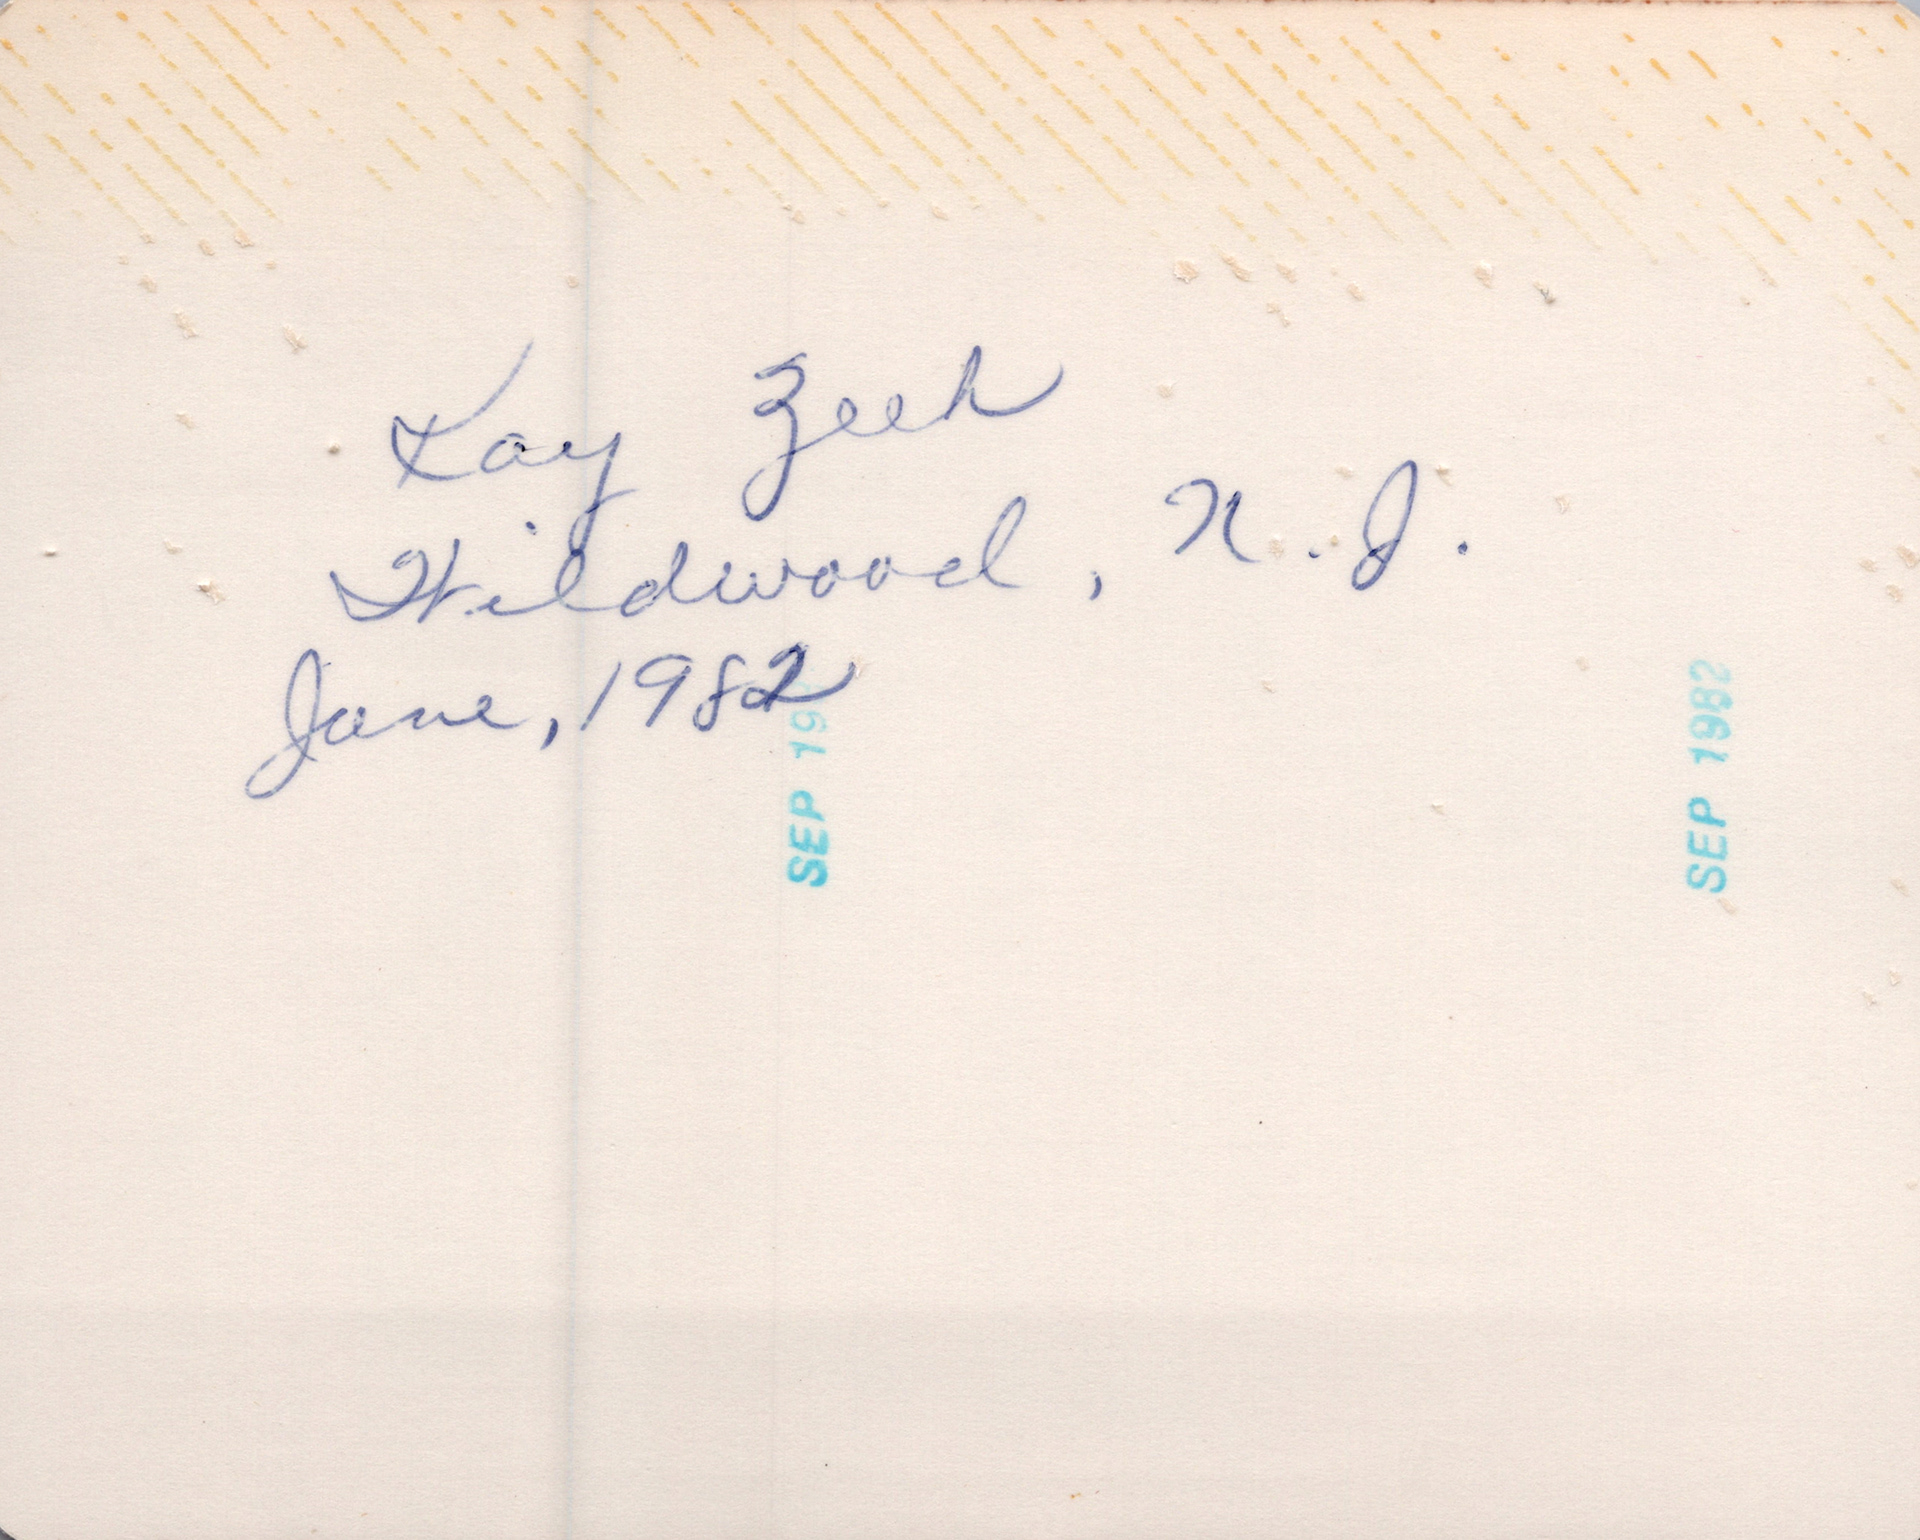 Kay Zeeh
Wildwood, N.J.
June, 1982
SEP 19
SEP 1982